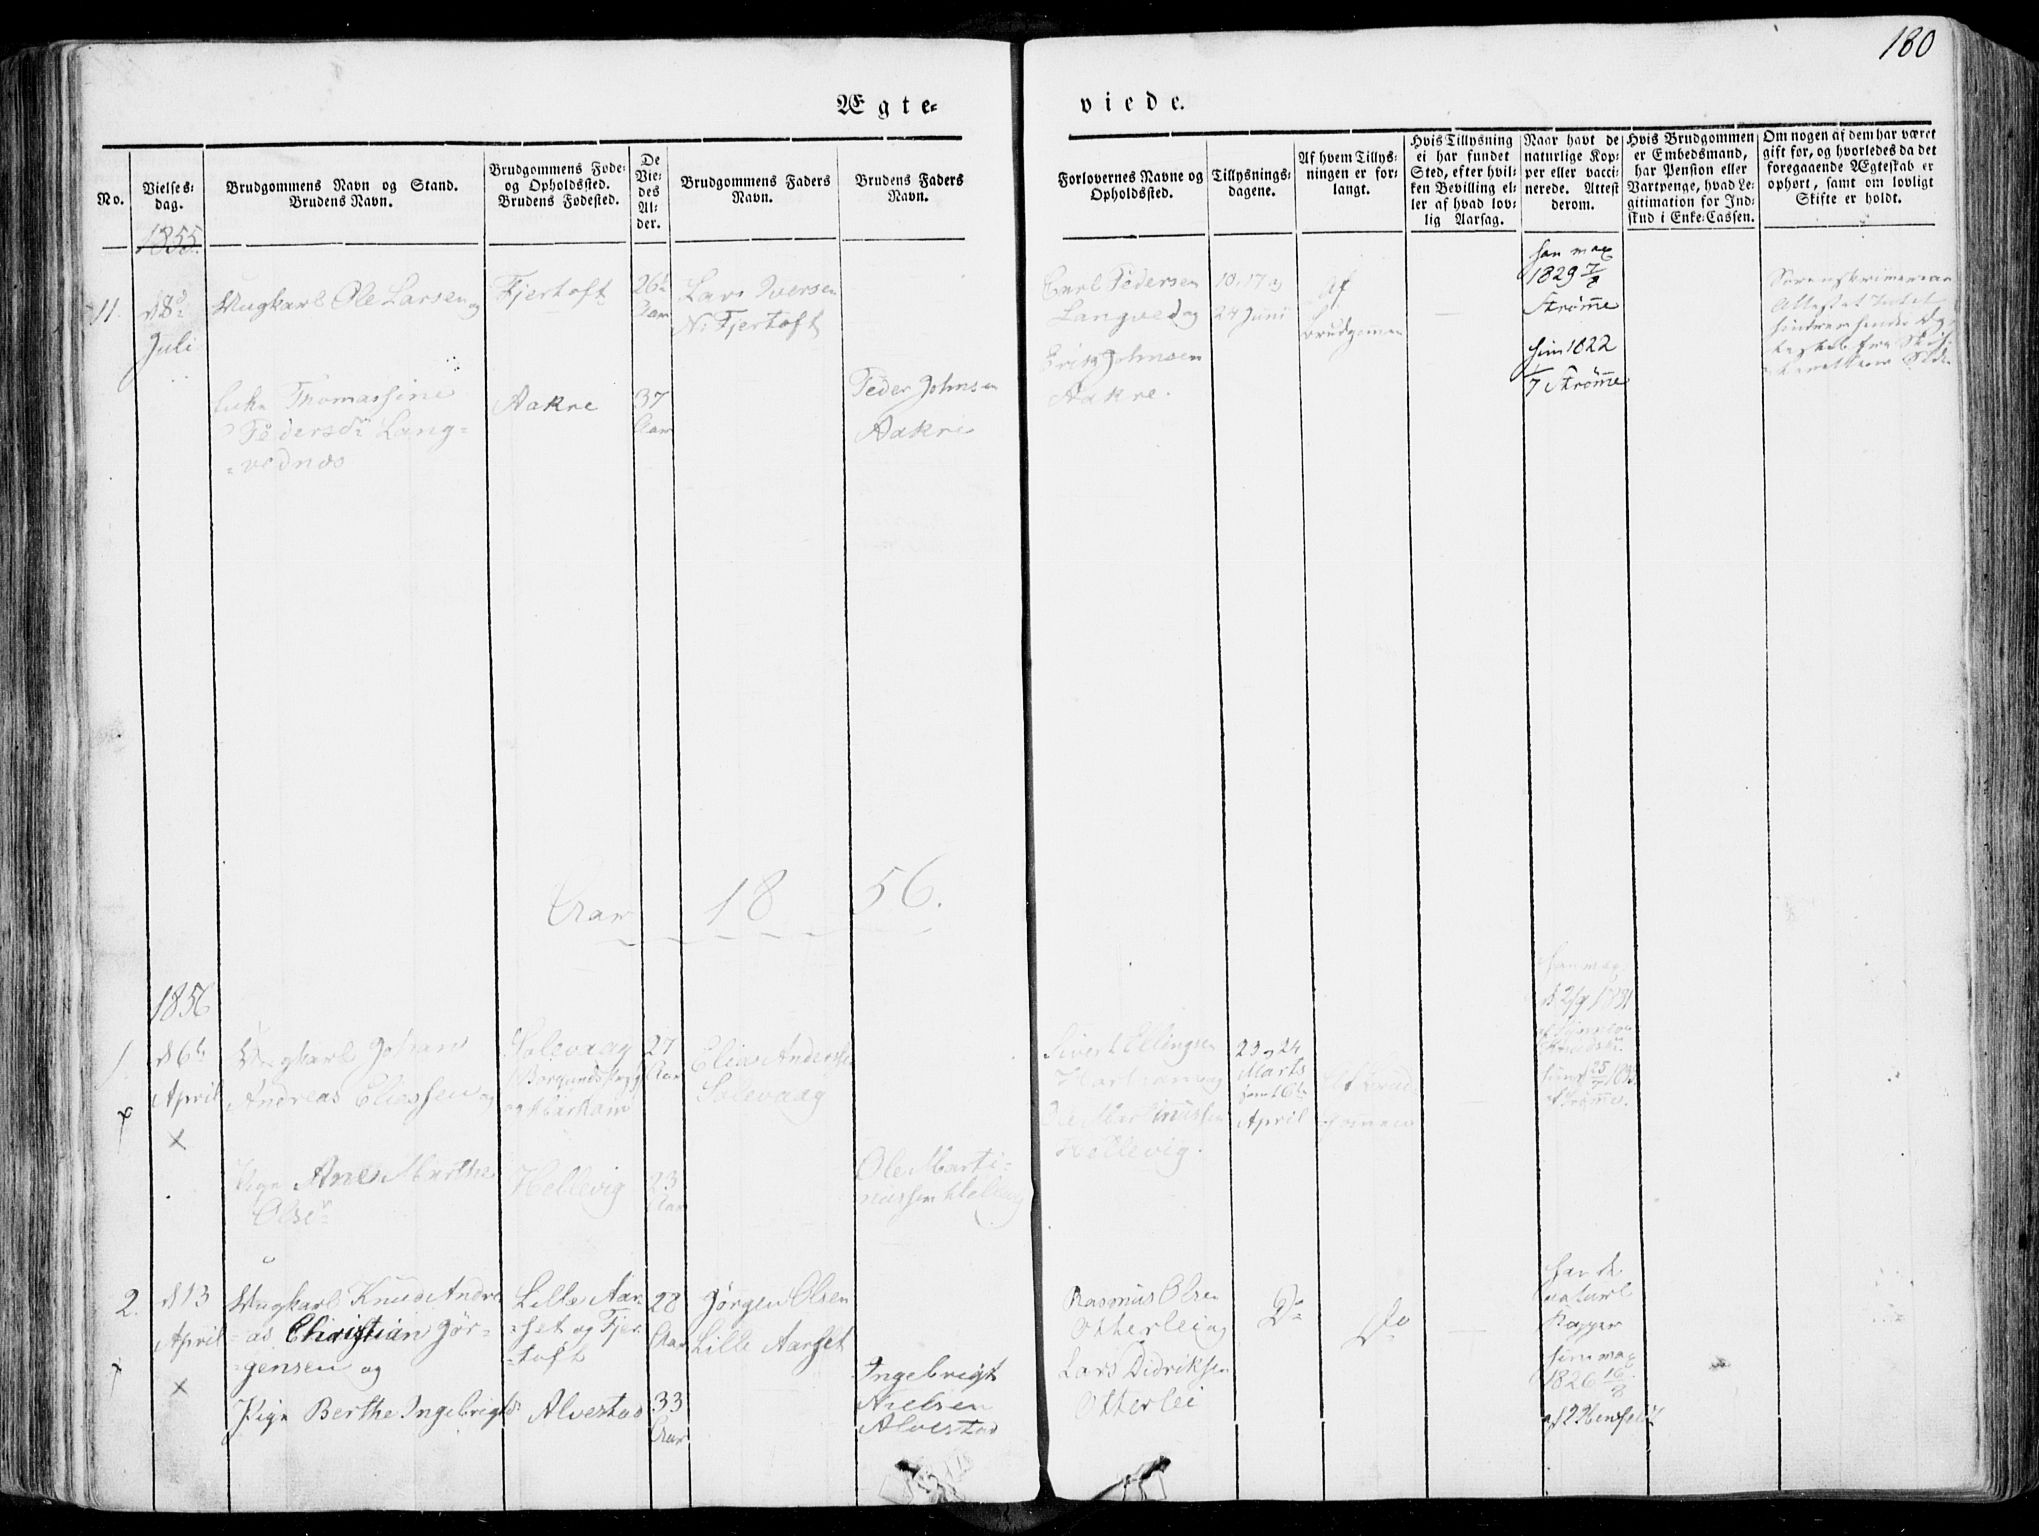 180
Ægte=
viede.
No.
Vielses=
dag.
Brudgommens Navn og Stand.
Brudens Navn.
Brudgommens Føde=
og Opholdssted.
Brudens Fødested.
De
Vie=
des
Al=
der.
Brudgommens Faders
Navn.
Brudens Faders
Navn.
Forlovernes Navne og
Opholdssted.
Tillysnings=
dagene.
Af hvem Tillys=
ningen er for=
langt.
Hvis Tillysning
ei har fundet
Sted, efter hvil=
ken Bevilling el=
ler af hvad lov=
lig Aarsag.
Naar havt de
naturlige Kop=
per eller vacci=
nerede. Attest
derom.
Hvis Brudgommen
er Embedsmand,
har Pension eller
Vartpenge, hvad Le=
gitimation for Ind=
skud i Enke=Cassen.
Om nogen af dem har været
gift før, og hvorledes da det
foregaaende Ægteskab er
ophørt, samt om lovligt
Skifte er holdt.
1855
11.
d 8de
Juli
Ungkarl Ole Larsen og
Fjertoft
26
Aar
Lars Iversen
N. Fjertoft
Carl Pedersen
Langved og
Erik Johnsen
Aakre.
10, 17 og
24 Juni
Af
Brudgommen
han vac
1829 7/8
Strømme
hun 1822
1/7 Strømme
Sorenskriverens
Attest
Enke Thomassine
Pedersdr Lang=
=vednæs
Aakre
37
Aar
Peder Johnsen
Aakre
Aar 1856.
1856
1.
d 6te
April
×
Ungkarl Johan
Andreas Eliassen og
Solevaag
Borgunds
og Harham
27
Aar
Elias Andersen
Solevaag
Sivert Ellingsen
Harham og
Ole Martinussen
Hellevig.
23 og 24
Marts
samt 6te
April
Af Brud
gommen
han vac
d 2/9 1831
hun 25/7
Strømme.
Pige Ane Marthe
Olsdr
Hellevig
23
Aar
Ole Marti=
nussen Hellevig
2.
d 13
April
×
Ungkarl Knud Andre
=as Christian Jør=
=gensen og
Lille Aar=
=set og Fjer
=toft
28
Aar
Jørgen Olsen
Lille Aarset
Rasmus Olsen
Otterlei og
Lars Didriksen
Otterlei
Do
Do
har de
naturl
Kopper
hun vac
1826 16/8
Pige Berthe Ingebrigtsdr
Alvestad
33
Aar
Ingebrigt
Nielsen
Alvestad